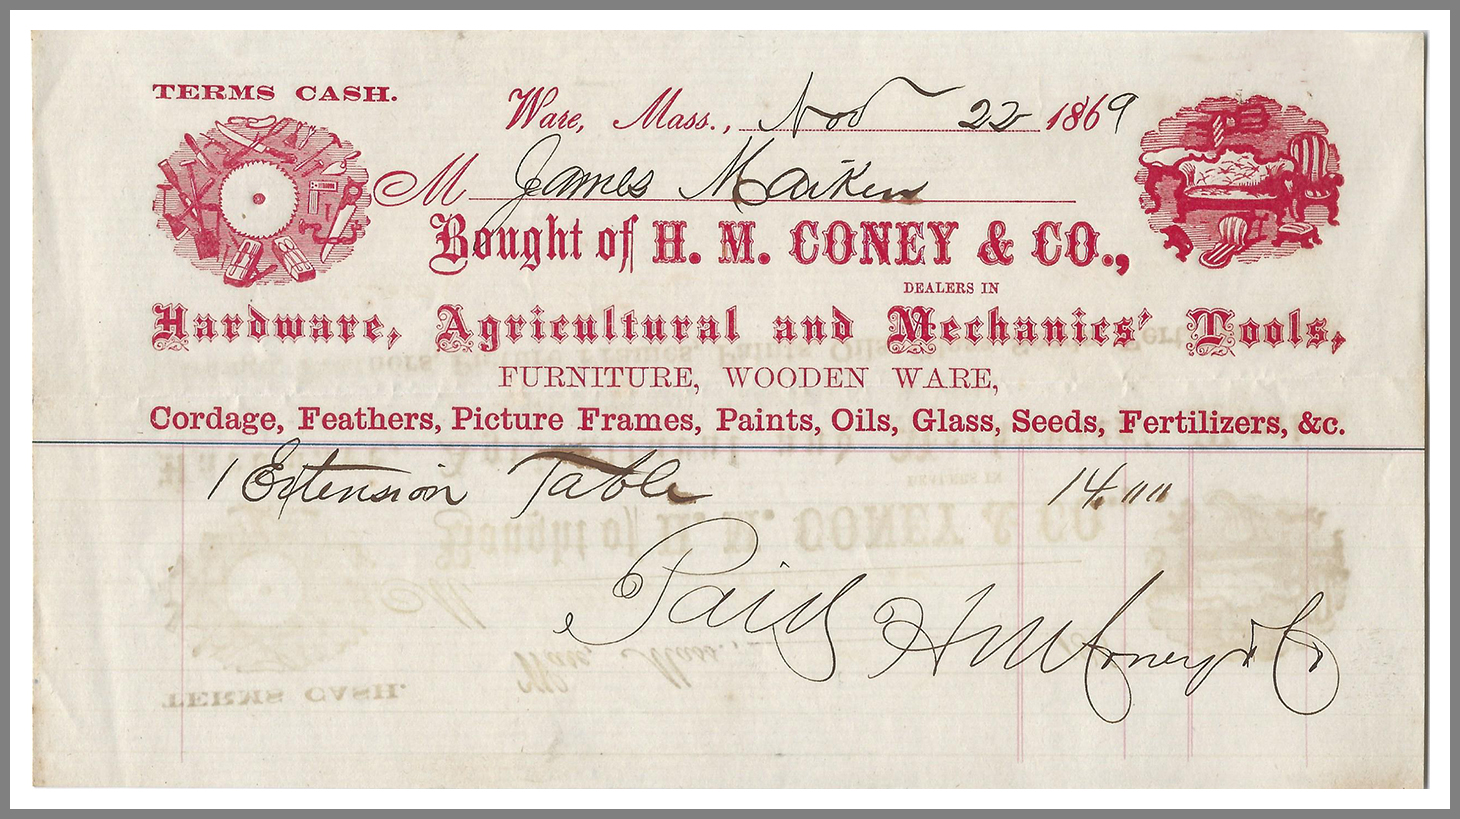 TERMS CASH.
Ware, Mass., Nov 22 1869
M James Maiken
Bought of H. M. CONEY & CO.,
DEALERS IN
Hardware, Agricultural and Mechanics' Tools,
FURNITURE, WOODEN WARE,
Cordage, Feathers, Picture Frames, Paints, Oils, Glass, Seeds, Fertilizers, &c.
1 Extension Table 14.00
Paid H M Coney & Co